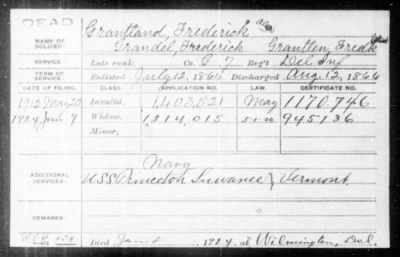 DEAD
NAME OF SOLDIER: Grantland, Frederick alias
Grandel, Frederick Grantlen, Fredk
Late rank, Co. G 7 Reg't Del Inf
TERM OF SERVICE: Enlisted July 12, 1864 Discharged Aug. 12, 1864
DATE OF FILING. CLASS. APPLICATION NO. LAW. CERTIFICATE NO.
1912 May 20 Invalid, May 1170,746
1924 Jan 7 Widow, 1,214,015 945136
Minor,
Navy
ADDITIONAL SERVICES: USS Princeton Suwanee & Vermont
REMARKS:
Died Jan 2, 1924, at Wilmington, Del.